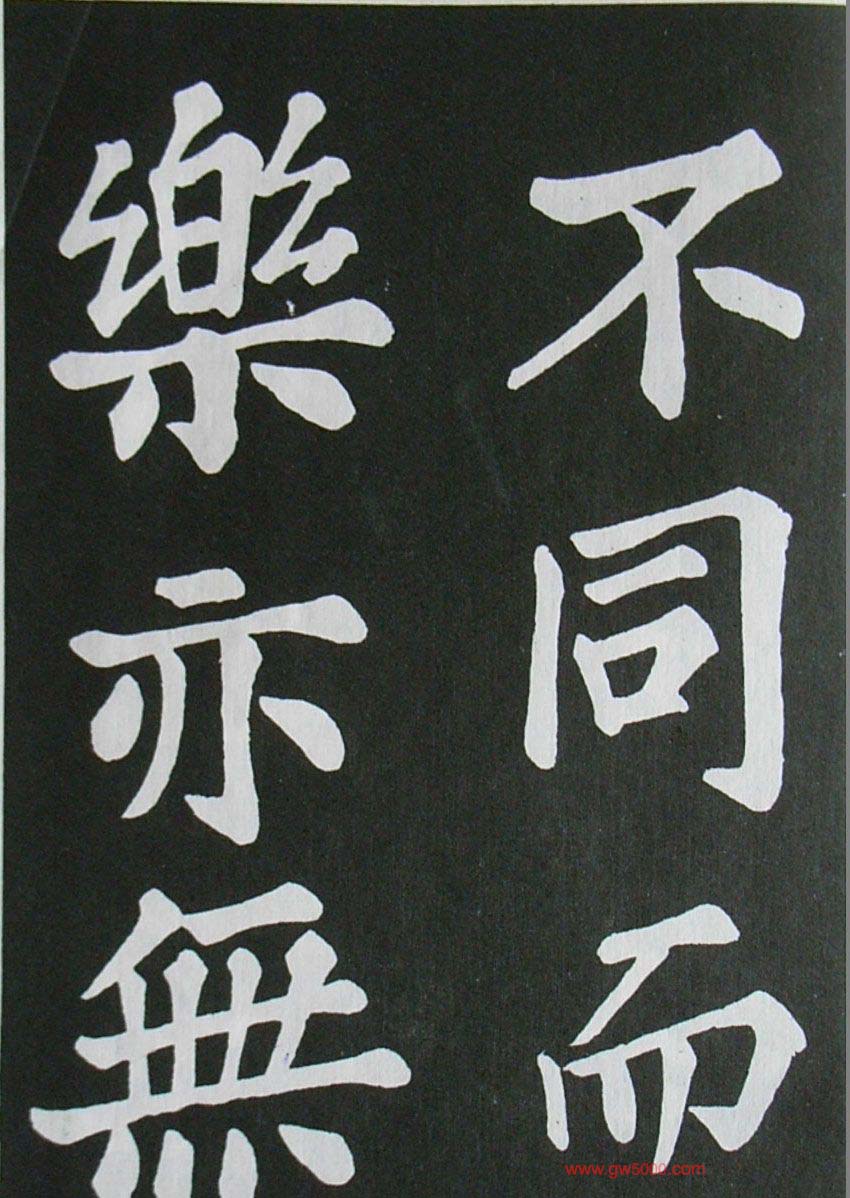 不同而
樂亦無
www.gw5000.com